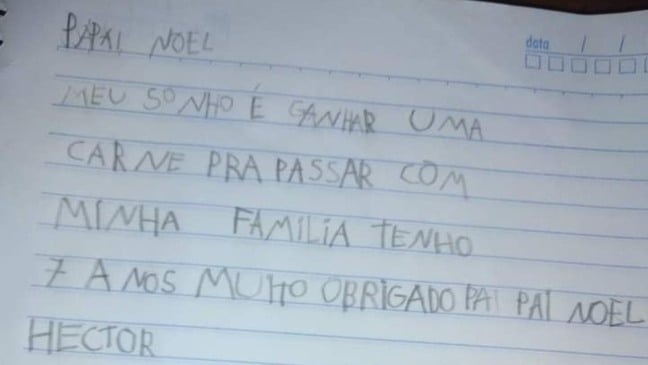 PAPAI NOEL
data / /
MEU SONHO É GANHAR UMA
CARNE PRA PASSAR COM
MINHA FAMILIA TENHO
7 ANOS MUITO OBRIGADO PAI PAI NOEL
HECTOR